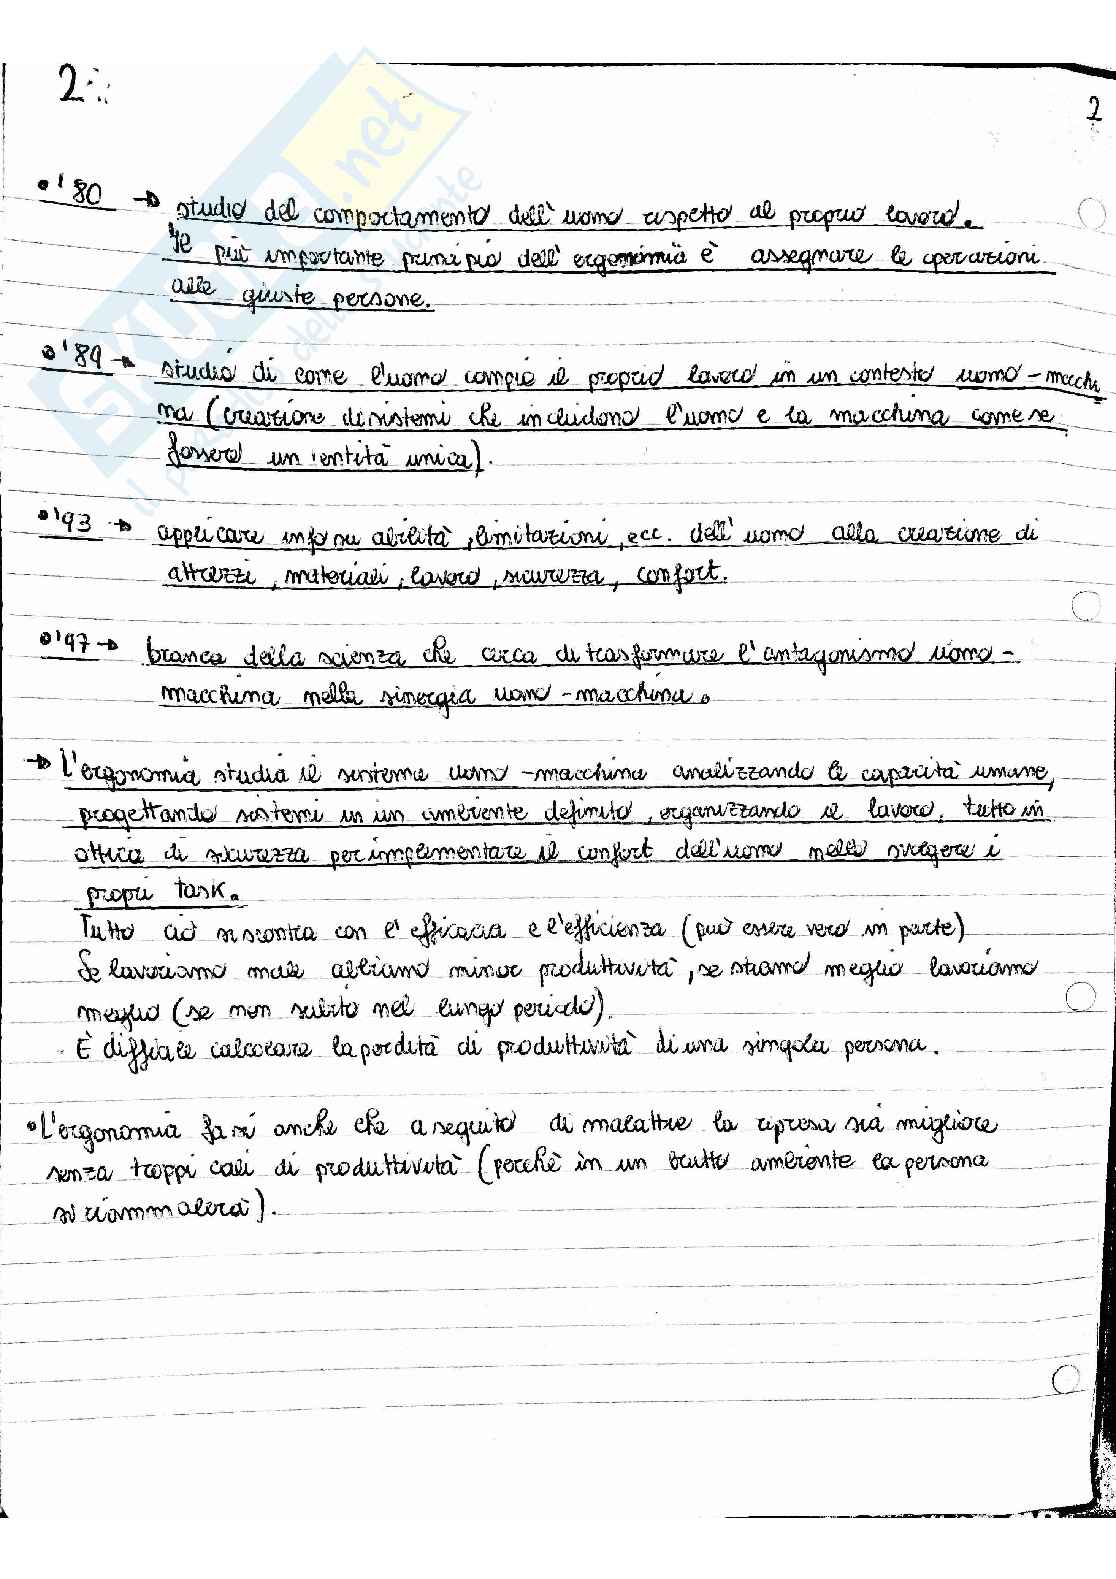 2
2
• '80 → studio del comportamento dell'uomo rispetto al proprio lavoro.
Il più importante principio dell'ergonomia è assegnare le operazioni
alle giuste persone.
• '89 → studio di come l'uomo compie il proprio lavoro in un contesto uomo-macchi
na (creazione di sistemi che includono l'uomo e la macchina come se
fossero un'entità unica).
• '93 → applicare info su abilità, limitazioni, ecc. dell'uomo alla creazione di
attrezzi, materiali, lavoro, sicurezza, confort.
• '97 → branca della scienza che cerca di trasformare l'antagonismo uomo-
macchina nella sinergia uomo-macchina.
→ L'ergonomia studia il sistema uomo-macchina analizzando le capacità umane,
progettando sistemi in un ambiente definito, organizzando il lavoro, tutto in
ottica di sicurezza per implementare il confort dell'uomo nello svolgere i
propri task.
Tutto ciò si scontra con l'efficacia e l'efficienza (può essere vero in parte)
Se lavoriamo male abbiamo minor produttività, se stiamo meglio lavoriamo
meglio (se non subito nel lungo periodo).
È difficile calcolare la perdita di produttività di una singola persona.
• L'ergonomia fa sì anche che a seguito di malattie la ripresa sia migliore
senza troppi cali di produttività (perchè in un brutto ambiente la persona
si riammalerà).
SKUOLA.net
il portale dello studente